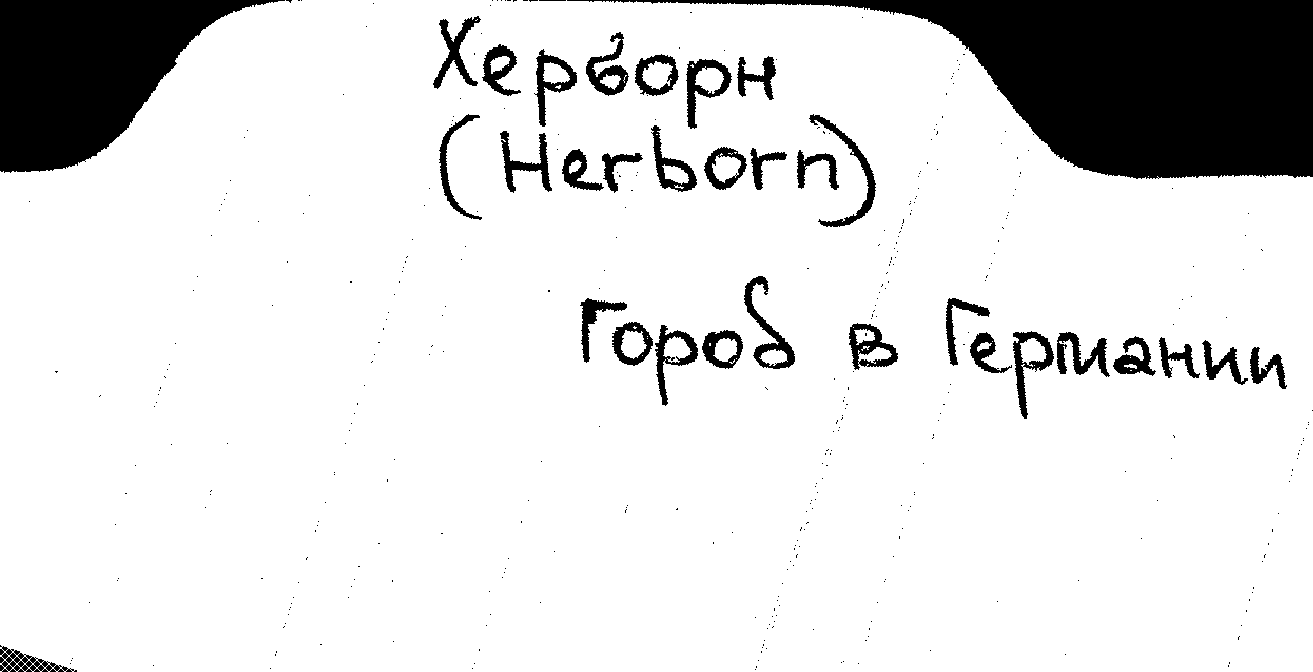 Херборн
(Herborn)
Город в Германии